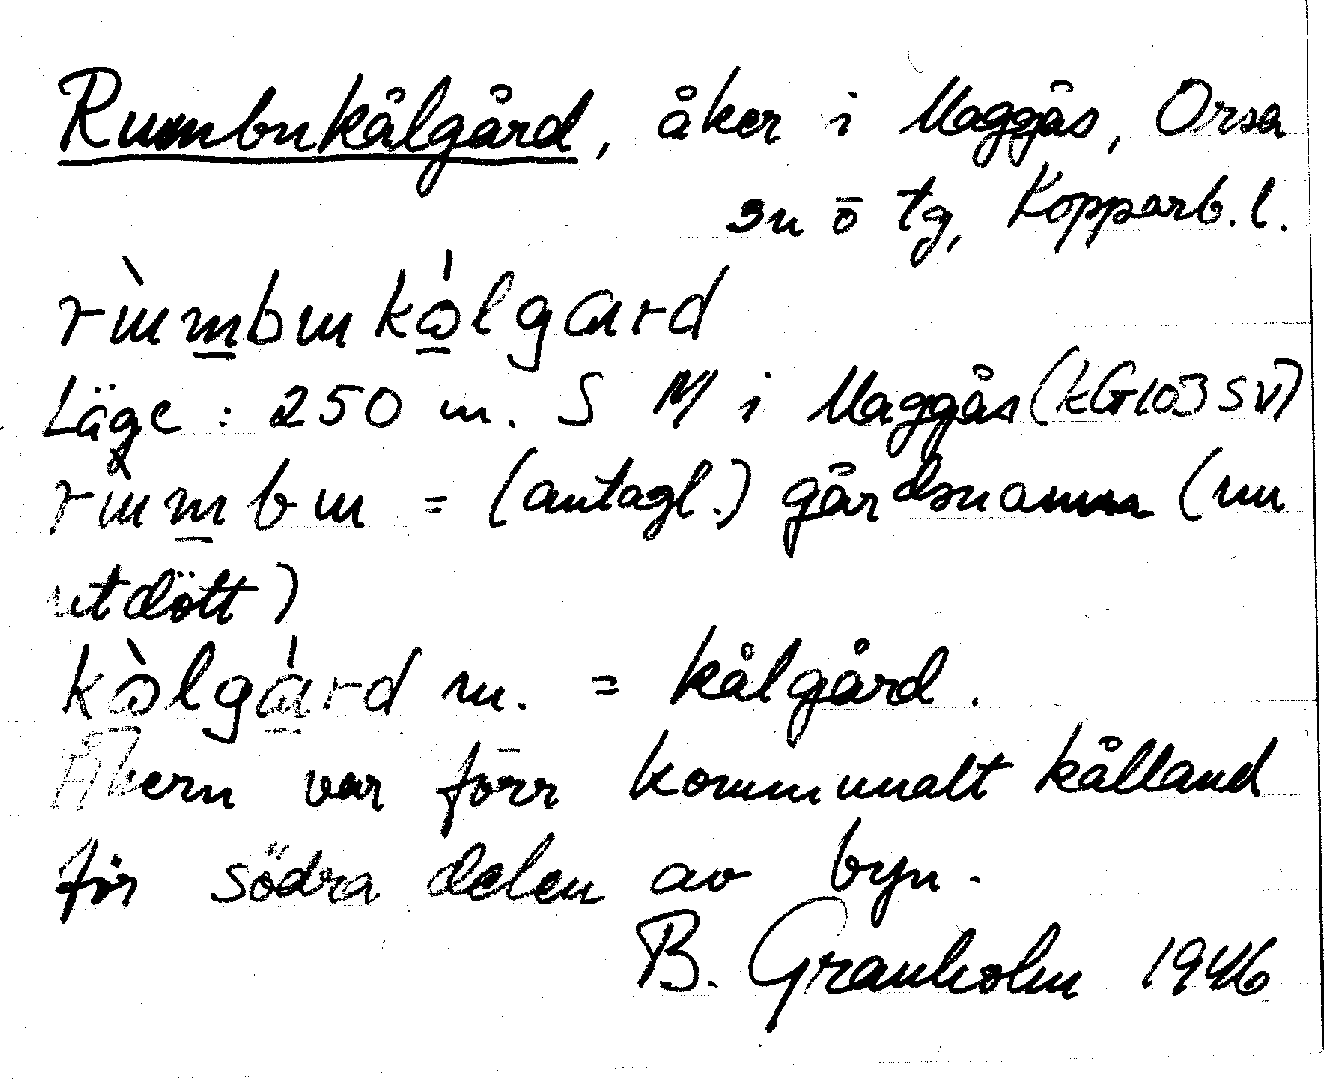 Rumbukålgård, åker i Maggås, Orsa
sn ö tg, Kopparb. l.
Läge : 250 m. S M i Maggås (kG103SV)
= (antagl.) gårdsnamn (nu
utdött)
m. = kålgård.
Åkern var förr kommunalt kålland
för södra delen av byn.
B. Granholm 1946